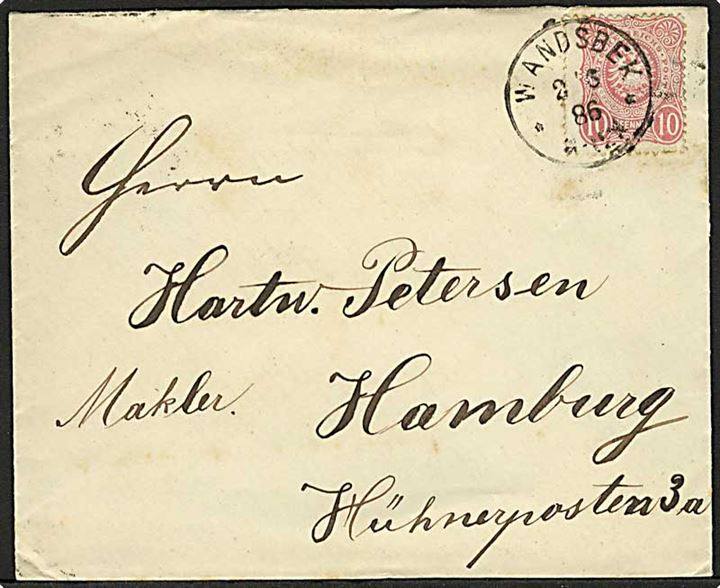 WANDSBEK
86
10 PFENNIG 10
Herrn
Hartw. Petersen
Makler. Hamburg
Hühnerposten 3a